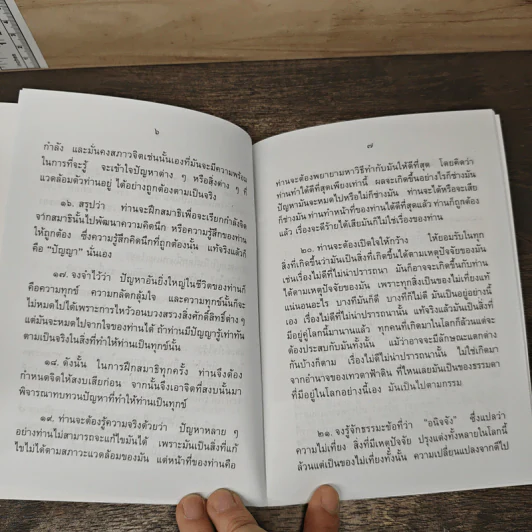 ๖
กำลัง และมั่นคงสภาวจิตเช่นนั้นเองที่มันจะมีความพร้อม
ในการที่จะรู้ จะเข้าใจปัญหาต่าง ๆ หรือสิ่งต่าง ๆ ที่
แวดล้อมตัวท่านอยู่ ได้อย่างถูกต้องตามเป็นจริง
๑๖. สรุปว่า ท่านจะฝึกสมาธิเพื่อจะเรียกกำลังจิต
จากสมาธินั้นไปพัฒนาความคิดนึก หรือความรู้สึกของท่าน
ให้ถูกต้อง ซึ่งความรู้สึกคิดนึกที่ถูกต้องนั้น แท้จริงแล้วก็
คือ “ปัญญา” นั่นเอง
๑๗. จงจำไว้ว่า ปัญหาอันยิ่งใหญ่ในชีวิตของท่านก็
คือความทุกข์ ความกลัดกลุ้มใจ และความทุกข์นั้นก็จะ
ไม่หมดไปได้เพราะการไหว้วอนบวงสรวงสิ่งศักดิ์สิทธิ์ต่าง ๆ
แต่มันจะหมดไปจากใจของท่านได้ ถ้าท่านมีปัญญารู้เท่าทัน
ตามเป็นจริงในสิ่งที่ทำให้ท่านเป็นทุกข์นั้น
๑๘. ดังนั้น ในการฝึกสมาธิทุกครั้ง ท่านจึงต้อง
กำหนดจิตให้สงบเสียก่อน จากนั้นจึงเอาจิตที่สงบนั้นมา
พิจารณาทบทวนปัญหาที่ทำให้ท่านเป็นทุกข์
๑๙. ท่านจะต้องรู้ความจริงด้วยว่า ปัญหาหลาย ๆ
อย่างท่านไม่สามารถจะแก้ไขมันได้ เพราะมันเป็นสิ่งที่แก้
ไขไม่ได้ตามสภาวะแวดล้อมของมัน แต่หน้าที่ของท่านคือ
๗
ท่านจะต้องพยายามหาวิธีทำกับมันให้ดีที่สุด โดยคิดว่า
ท่านทำได้ดีที่สุดเพียงเท่านี้ ผลจะเกิดขึ้นอย่างไรก็ช่างมัน
ปัญหามันจะหมดไปหรือไม่ก็ช่างมัน ท่านจะได้หรือจะเสีย
ก็ช่างมัน ท่านทำหน้าที่ของท่านได้ดีที่สุดแล้ว ท่านก็ถูกต้อง
แล้ว เรื่องจะดีร้ายได้เสียมันก็ไม่ใช่เรื่องของท่าน
๒๐. ท่านจะต้องเปิดใจให้กว้าง ให้ยอมรับในทุก
สิ่งที่เกิดขึ้นว่ามันเป็นสิ่งที่เกิดขึ้นได้ตามเหตุปัจจัยของมัน
เช่นเรื่องไม่ดีที่ไม่น่าปรารถนา มันก็อาจจะเกิดขึ้นกับท่าน
ได้ตามเหตุปัจจัยของมัน เพราะทุกสิ่งเป็นของไม่เที่ยงแท้
แน่นอนอะไร บางทีมันก็ดี บางทีก็ไม่ดี มันเป็นอยู่อย่างนี้
เอง เรื่องไม่ดีที่ไม่น่าปรารถนานั้น แท้จริงแล้วมันเป็นสิ่งที่
มีอยู่คู่โลกนี้มานานแล้ว ทุกคนที่เกิดมาในโลกก็ล้วนแต่จะ
ต้องประสบกับมันทั้งนั้น แม้ว่าอาจจะมีลักษณะแตกต่าง
กันบ้างก็ตาม เรื่องไม่ดีที่ไม่น่าปรารถนานั้น ไม่ใช่เกิดมา
จากอำนาจของเทวดาฟ้าดิน ที่ไหนเลยมันเป็นของธรรมดา
ที่มีอยู่ในโลกอย่างนี้เอง มันเป็นไปตามกรรม
๒๑. จงรู้จักธรรมะข้อที่ว่า “อนิจจัง” ซึ่งแปลว่า
ความไม่เที่ยง สิ่งที่มีเหตุปัจจัย ปรุงแต่งทั้งหลายในโลกนี้
ล้วนแต่เป็นของไม่เที่ยงทั้งนั้น ความเปลี่ยนแปลงจากดีไป